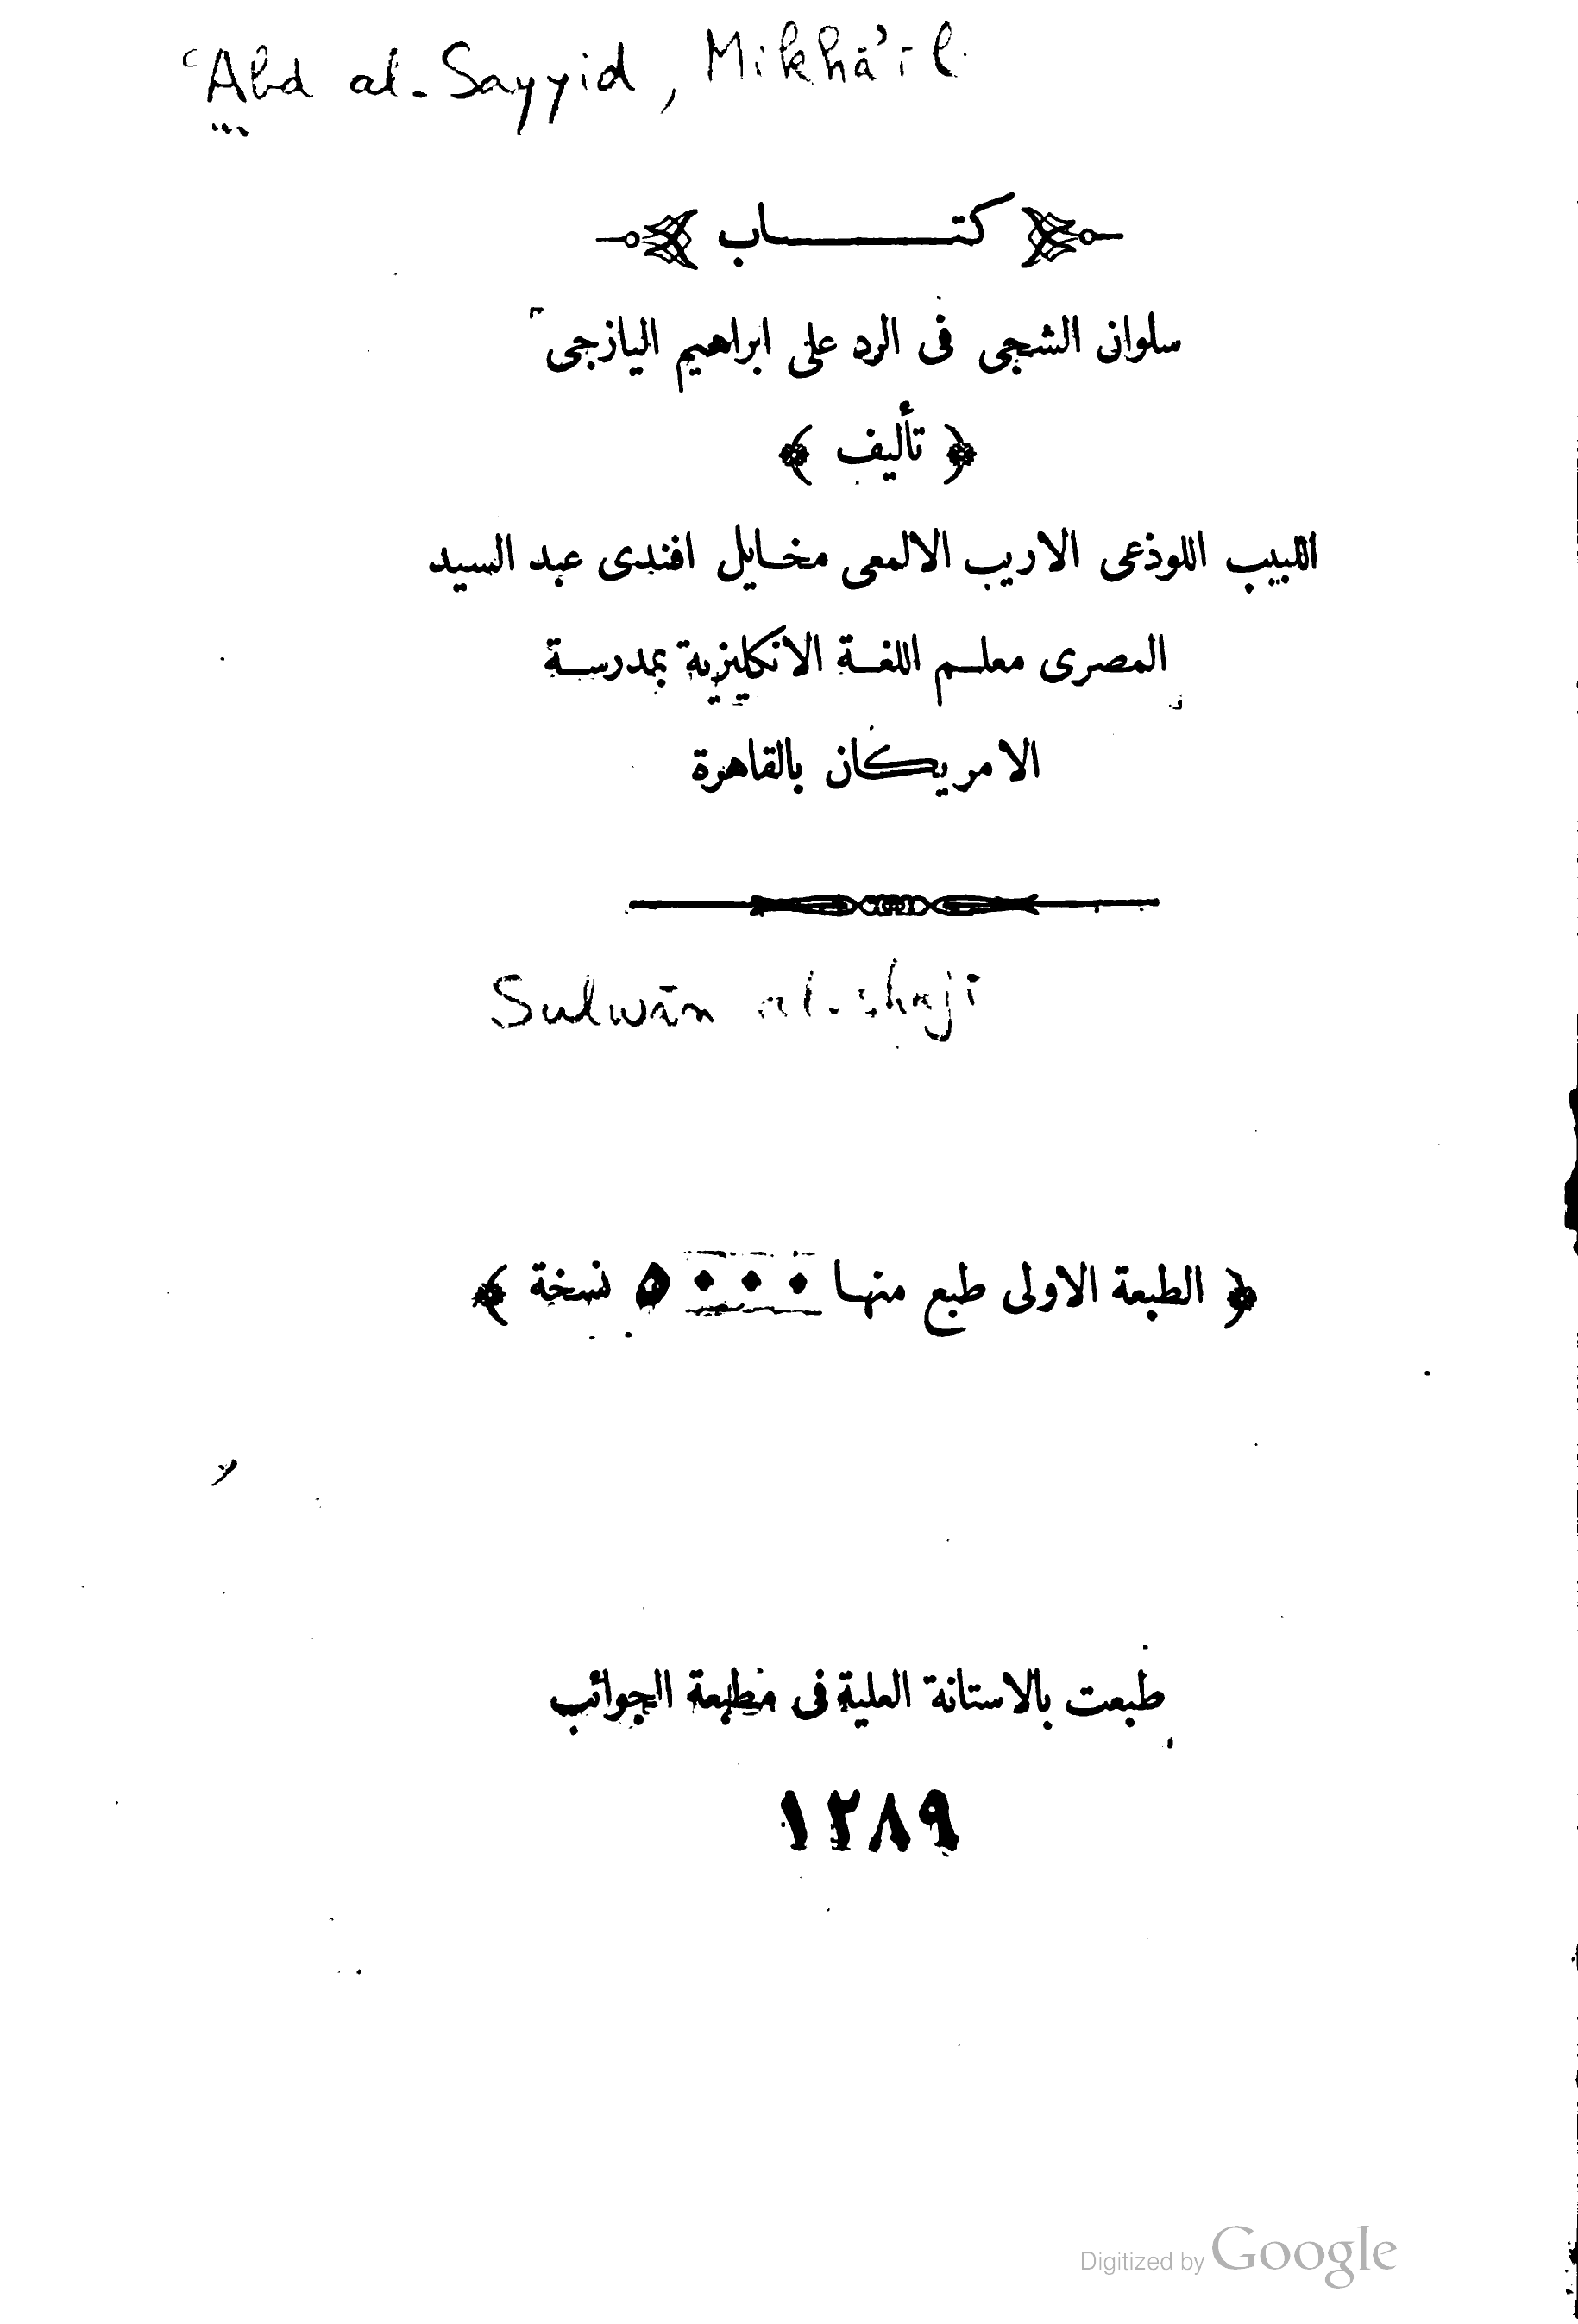 ʿAbd al-Sayyid, Mikhā'īl
﴿ كتـــاب ﴾
سلوان الشجى فى الرد على ابراهيم اليازجى
﴿ تأليف ﴾
اللبيب اللوذعى الاريب الالمعى مخايل افندى عبد السيد
المصرى معلم اللغة الانكليزية بمدرسة
الامريكان بالقاهرة
Sulwān al-shajī
﴿ الطبعة الاولى طبع منها ٥٠٠٠ نسخة ﴾
طبعت بالاستانة العلية فى مطبعة الجوائب
١٢٨٩
Digitized by Google